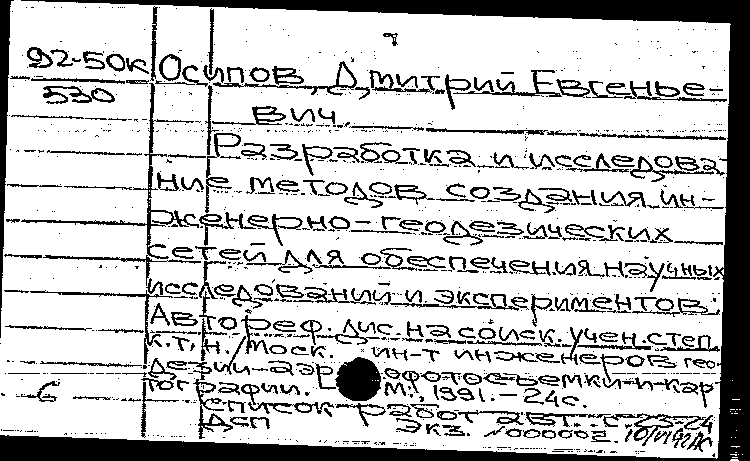 Д2-50к Осипов, Дмитрий Евгенье-
530
вич.
Разработка и исследова-
ние методов создания ин-
женерно-геодезических
сетей для обеспечения научных
исследований и экспериментов:
Автореф. дис. на соиск. учен. степ.
к.т.н./Моск. ин-т инженеров гео-
дезии аэрофотосъемки и кар-
тографии. М., 1991.-24с.
6
Список работ авт.: с.23-24
ДСП Экз. №000002